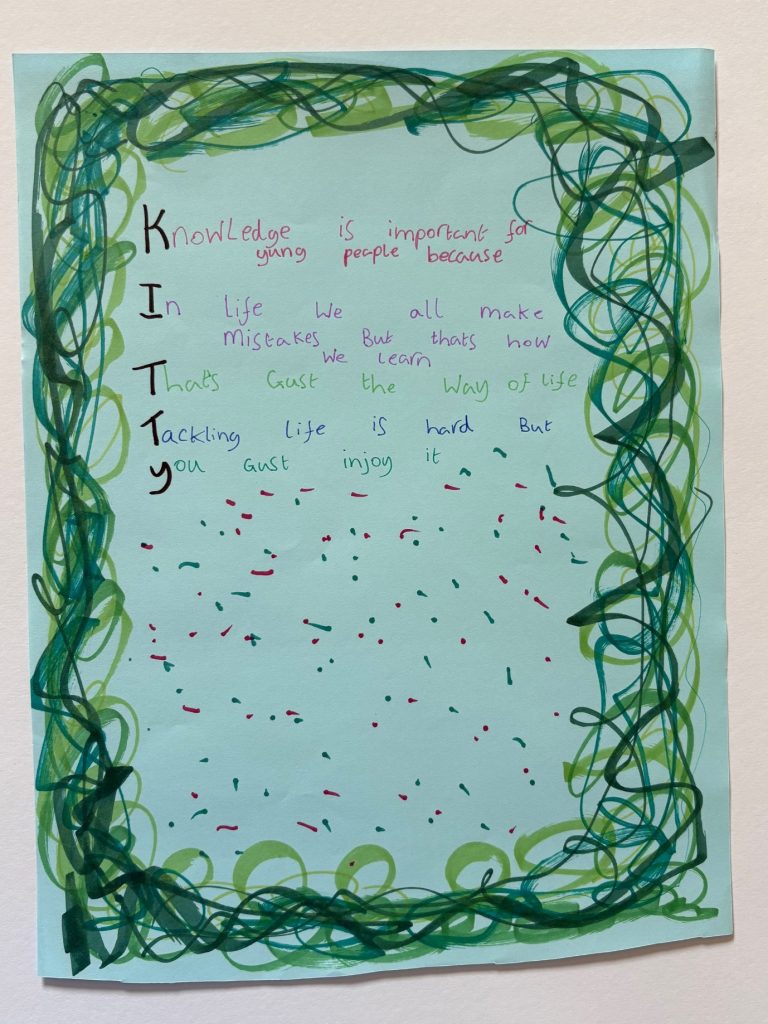 KnowLedge is important for
yüng peaple because
In life we all make
Mistakes But thats how
we learn
That's Gust the way of life
Tackling life is hard But
you Gust injoy it